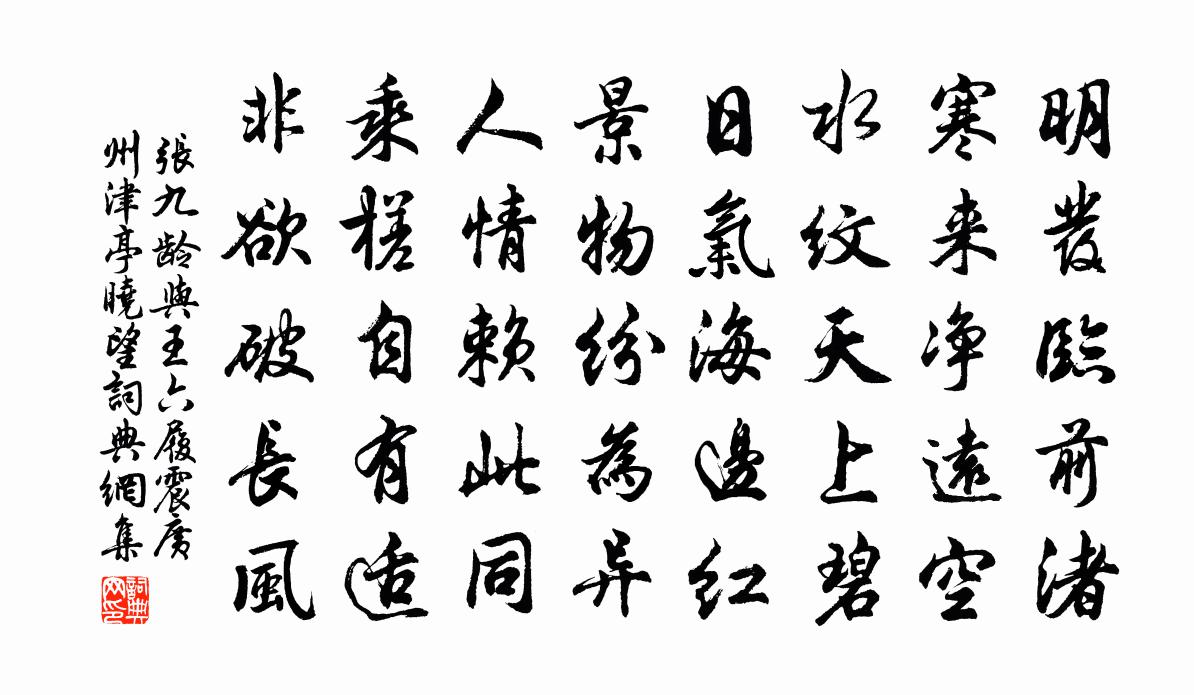 明發臨前渚
寒来净遠空
水紋天上碧
日氣海邊红
景物紛為异
人情賴此同
乘槎自有适
非欲破長風
張九龄與王六履震廣
州津亭曉望詞典網集
詞典
网印